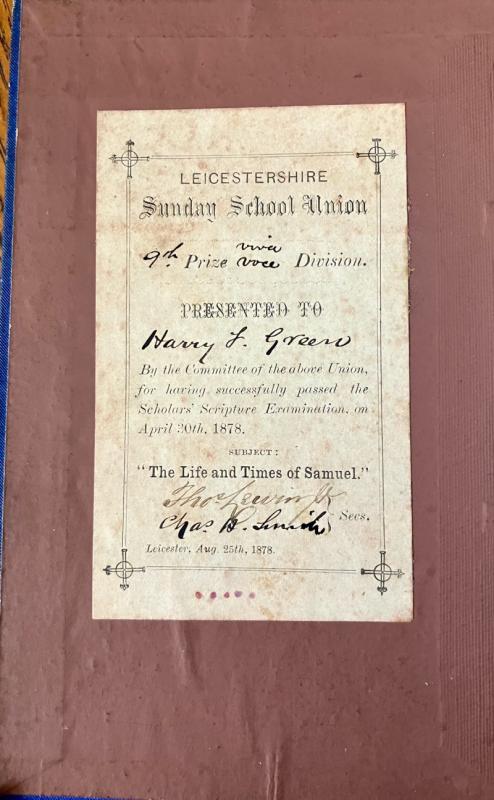 LEICESTERSHIRE
Sunday School Union
9th Prize viva voce Division.
PRESENTED TO
Harry F. Green
By the Committee of the above Union,
for having successfully passed the
Scholars' Scripture Examination, on
April 20th, 1878.
SUBJECT:
"The Life and Times of Samuel."
Thos
Chas H. Smith } Secs.
Leicester, Aug. 25th, 1878.